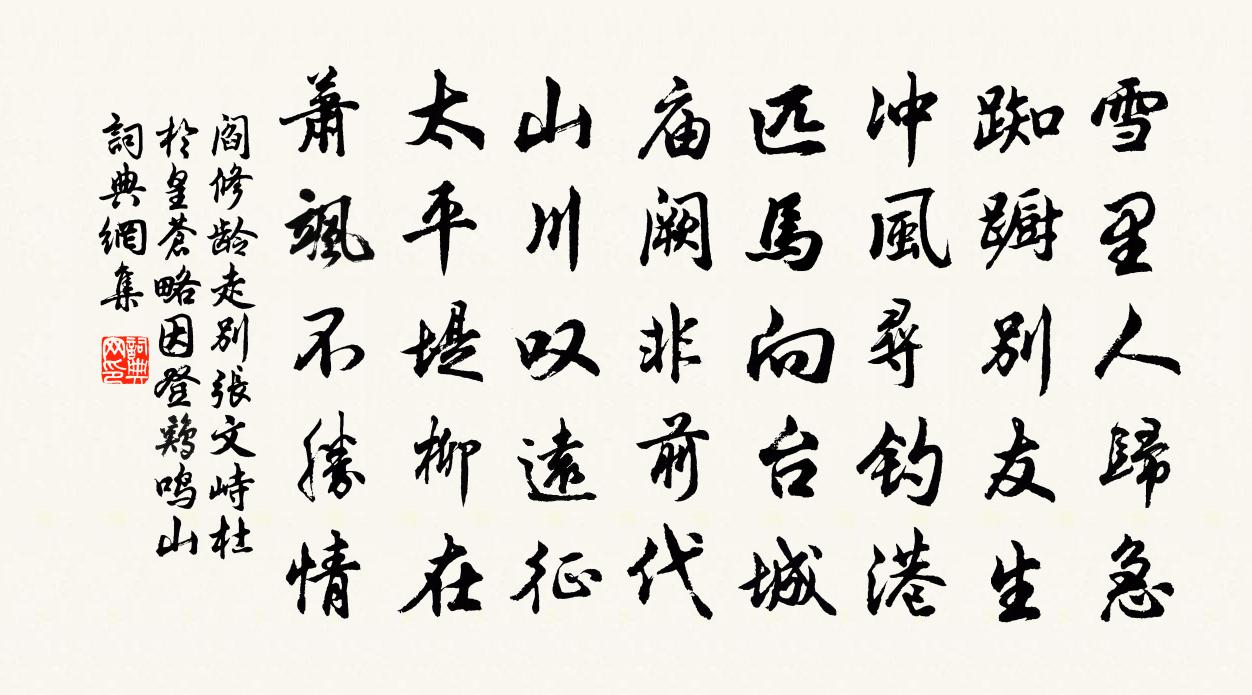 雪里人歸急
踟蹰别友生
冲風尋釣港
匹馬向台城
庙阙非前代
山川叹遠征
太平堤柳在
萧飒不勝情
阎修龄走别張文峙杜
於皇蒼略因登鷄鸣山
詞典網集